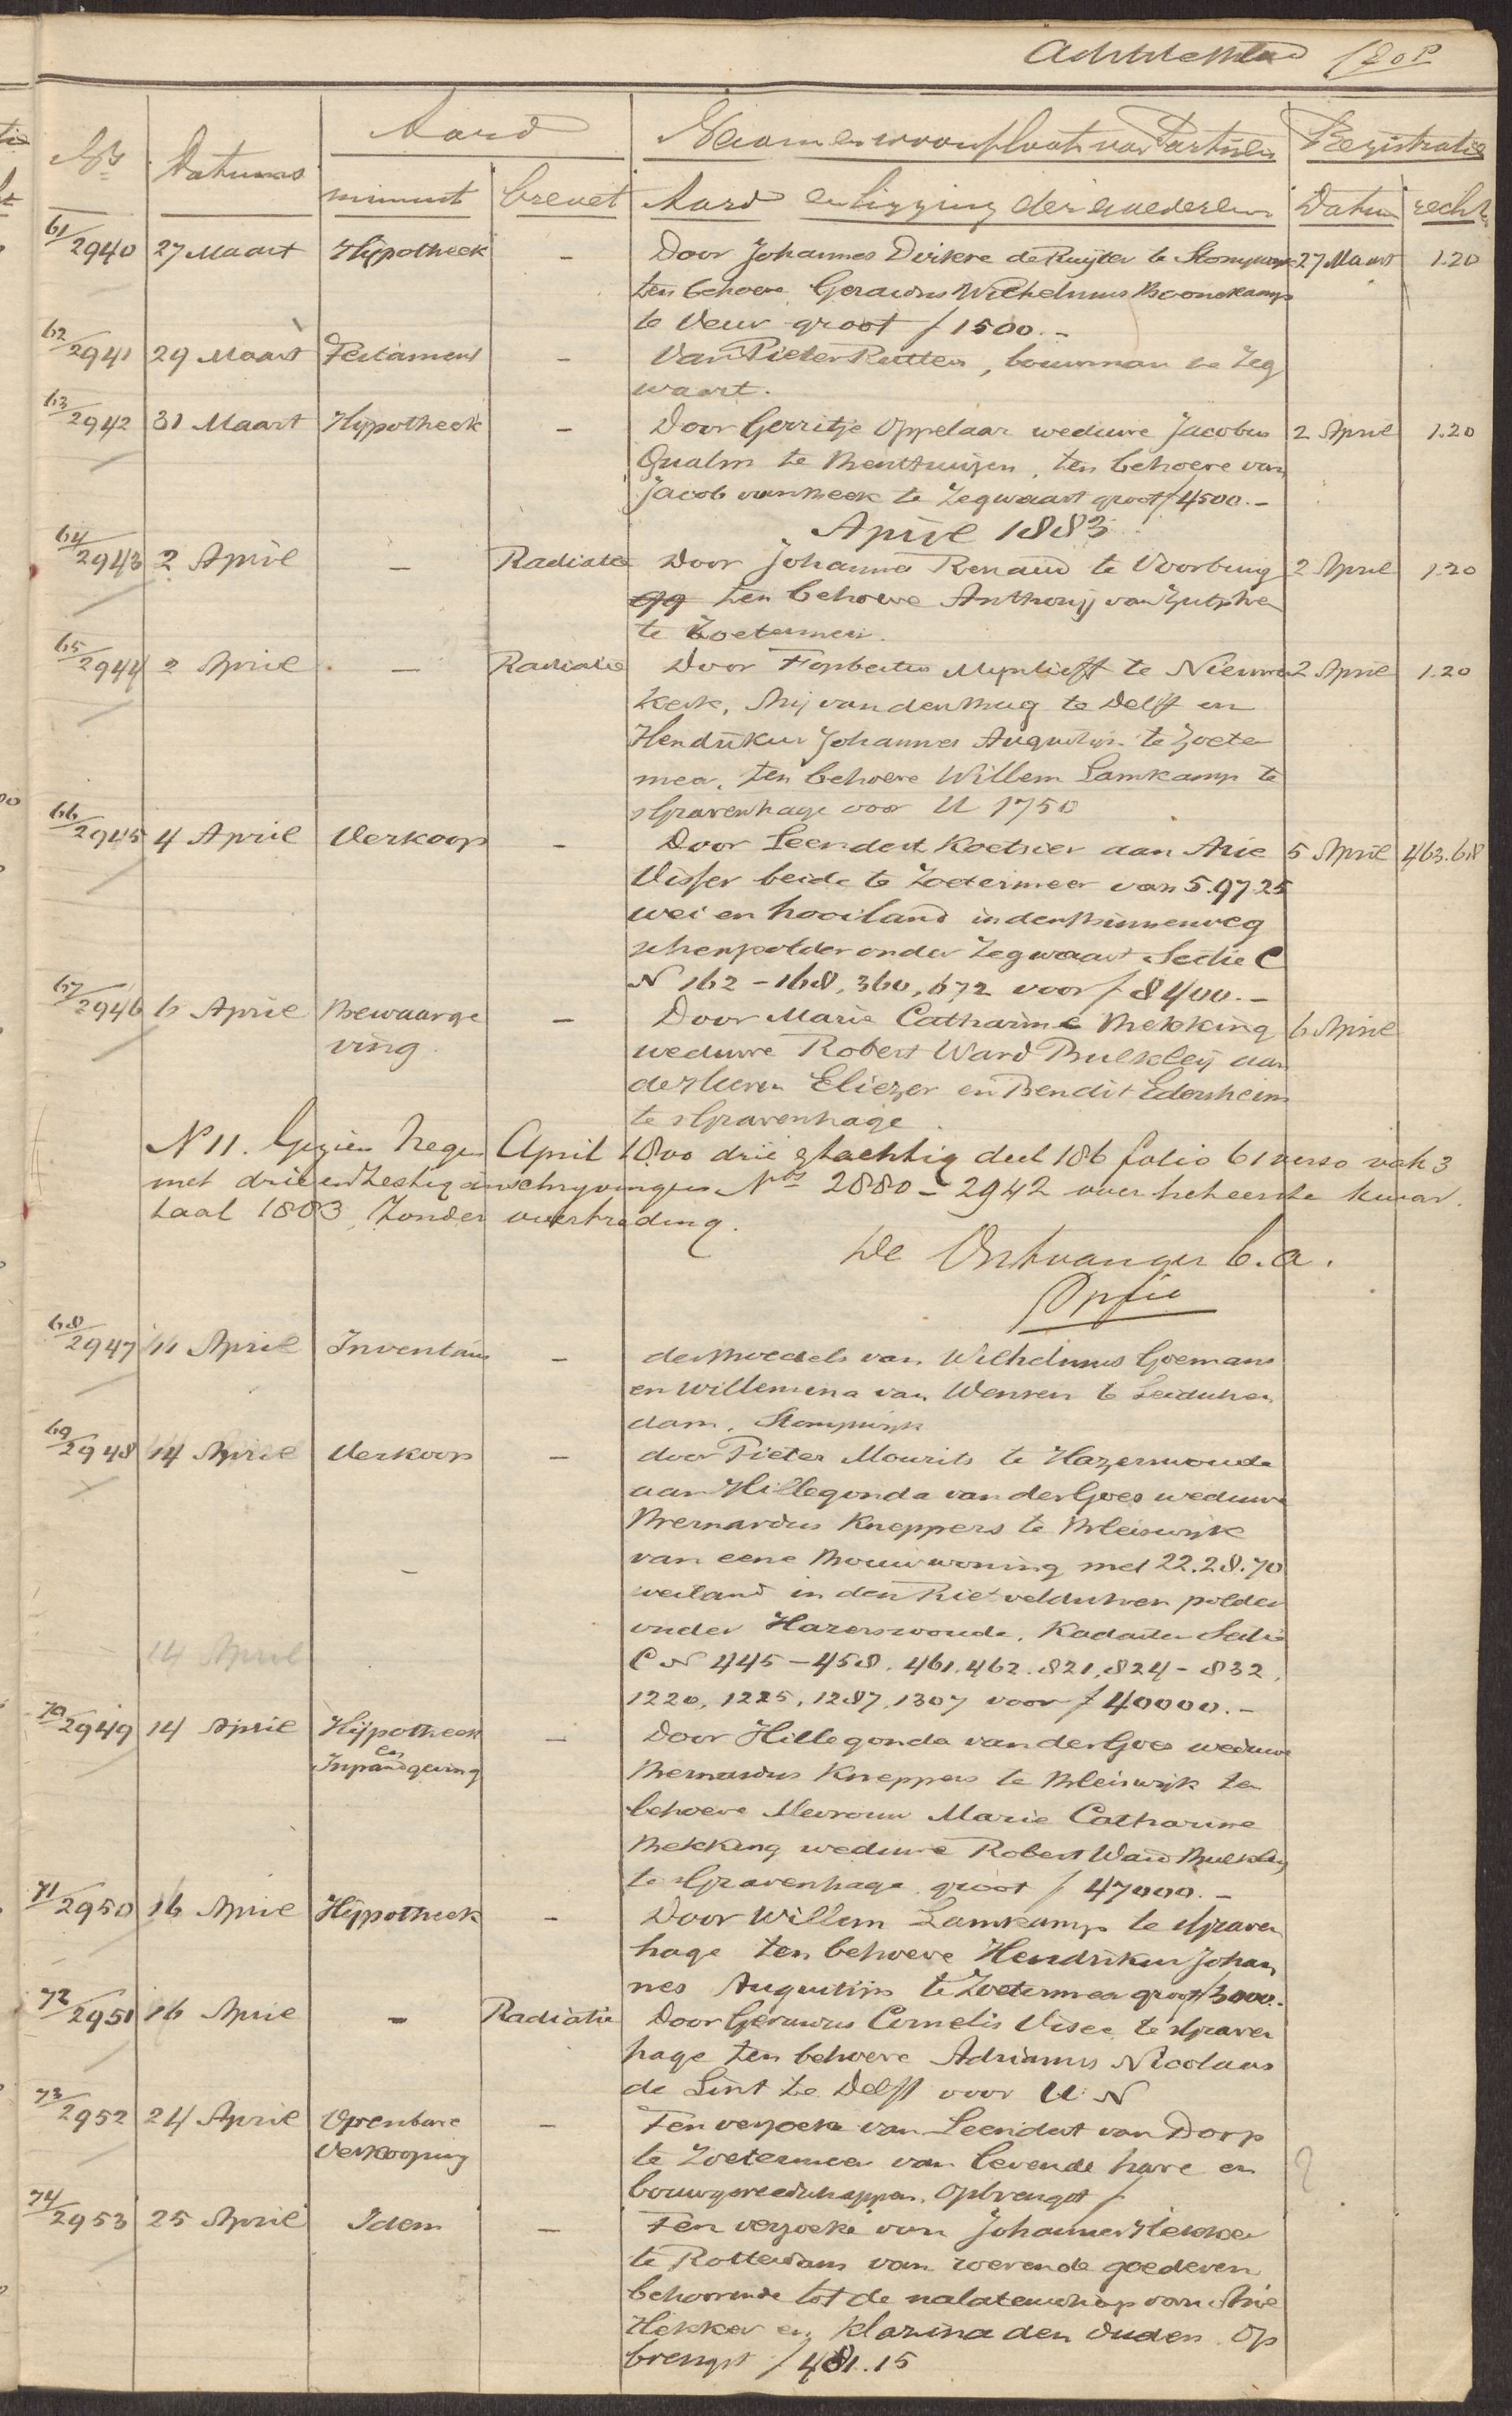 Achtste blad
No Datums Aard Naam en woonplaats van Partijen Registratie
minuut brevet Aard en ligging der goederen Datum recht
61/2940 27 Maart Hypotheek - Door Johannes Dirkse de Ruijter te Stompwijk 27 Maart 1.20
ten behoeve Gerardus Wilhelmus Boonekamp
te Veur groot f 1500.-
62/2941 29 Maart Testament - Van Pieter Rutten, bouwman te Zeg
waart.
63/2942 31 Maart Hypotheek - Door Gerritje Oppelaar weduwe Jacobus 2 April 1.20
Qualm te Benthuizen, ten behoeve van
Jacob van Beek te Zegwaart groot f 4500.-
April 1883
64/2943 2 April - Radiatie Door Johanna Renaud te Voorburg 2 April 1.20
ten behoeve Anthonij van Zutphen
te Zoetermeer.
65/2944 2 April - Radiatie Door Fopbertus Mijnlieff te Nieuwer 2 April 1.20
kerk, Arij van den Burg te Delft en
Hendrikus Johannes Augustijn te Zoeter
meer, ten behoeve Willem Lamkamp te
sGravenhage voor U 1750
66/2945 4 April Verkoop - Door Leendert Koetsier aan Arie 5 April 463.68
Visser beide te Zoetermeer van 5.97.25
wei en hooiland in den Binnenweg
schenpolder onder Zegwaart Sectie C
N 162 - 168, 360, 672 voor f 8400.-
67/2946 6 April Bewaarge - Door Marie Catharine Bekking 6 April
ving weduwe Robert Ward Bulkley aan
de Heeren Eliezer en Bendit Edersheim
te sGravenhage.
N 11. Gezien negen April 1800 drie & tachtig deel 186 folio 61 verso vak 3
met drie en zestig inschrijvingen Nos 2880 - 2942 over het eerste kwar
taal 1883 Zonder overtreding.
De Ontvanger b.a.
68/2947 11 April Inventaris - der boedels van Wilhelmus Goemans
en Willemina van Wensen te Leidschen
dam, Stompwijk
69/2948 14 April Verkoop - door Pieter Mourits te Hazerswoude
aan Hillegonda van der Goes weduwe
Bernardus Kneppers te Bleiswijk
van eene Bouwwoning met 22.28.70
- weiland in den Rietveldschen polder
onder Hazerswoude, Kadaster Sectie
14 April C N 445 - 458, 461, 462, 821, 824 - 832,
1220, 1225, 1287, 1307 voor f 40000.-
70/2949 14 April Hypotheek - Door Hillegonda van der Goes weduwe
en
Inpandgeving Bernardus Kneppers te Bleiswijk ten
behoeve Mevrouw Marie Catharine
Bekking weduwe Robert Ward Bulkley
te sGravenhage groot f 47000.-
71/2950 16 April Hypotheek - Door Willem Lamkamp te sGraven
hage ten behoeve Hendrikus Johan
nes Augustijn te Zoetermeer groot f 3000.-
72/2951 16 April - Radiatie Door Gerardus Cornelis Visee te sGraven
hage ten behoeve Adrianus Nicolaas
de Lint te Delft voor U: N
73/2952 24 April Openbare - Ten verzoeke van Leendert van Dorp
Verkooping te Zoetermeer van levende have en ?
bouwgereedschappen. Opbrengst f
74/2953 25 April Idem - Ten verzoeke van Johannes Hekker
te Rotterdam van roerende goederen
behoorende tot de nalatenschap van Arie
Hekker en Klazina den Ouden. Op
brengst f 481.15